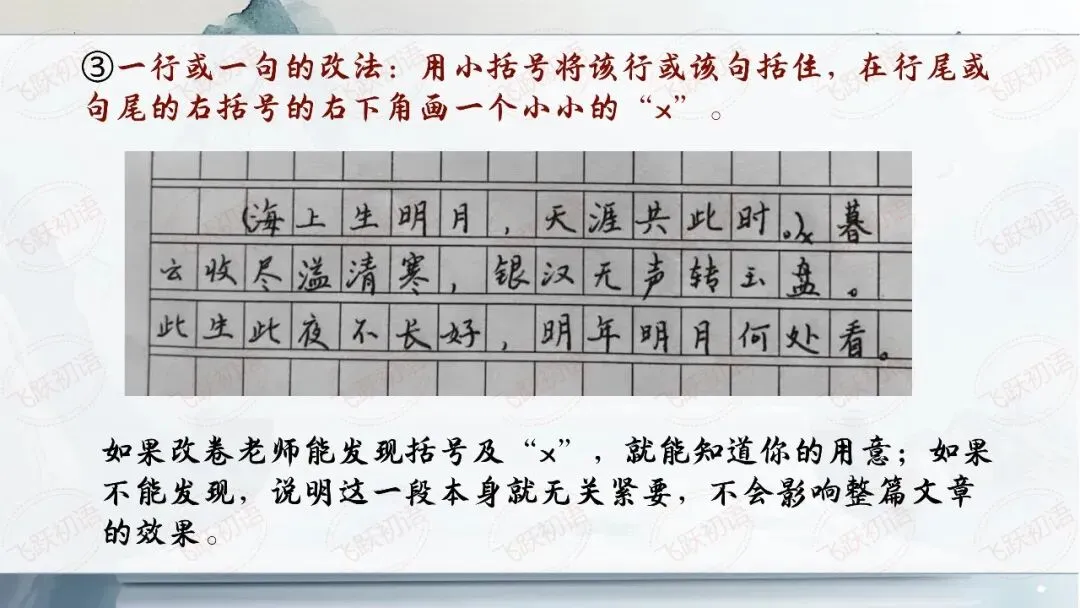 ③一行或一句的改法：用小括号将该行或该句括住，在行尾或
句尾的右括号的右下角画一个小小的“×”。
（海上生明月，天涯共此时。）×暮
云收尽溢清寒，银汉无声转玉盘。
此生此夜不长好，明年明月何处看。
如果改卷老师能发现括号及“×”，就能知道你的用意；如果
不能发现，说明这一段本身就无关紧要，不会影响整篇文章
的效果。
飞跃初语